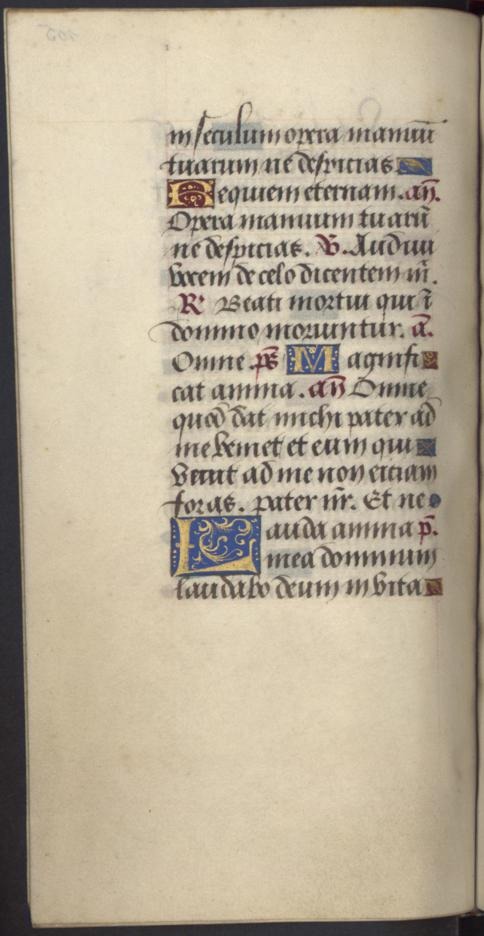 in seculum opera manuū
tuarum ne despicias
Requiem eternam. añ.
Opera manuum tuarū
ne despicias. V. Audiui
vocem de celo dicentem m̄.
R Beati mortui qui ī
domino moriuntur. a.
Omne. ps̄ Magnifi
cat anima. añ Omne
quod dat michi pater ad
me veniet et eum qui
venit ad me non eiciam
foras. pater nr̄. Et ne
Lauda anima p̄.
mea dominum
laudabo deum in vita